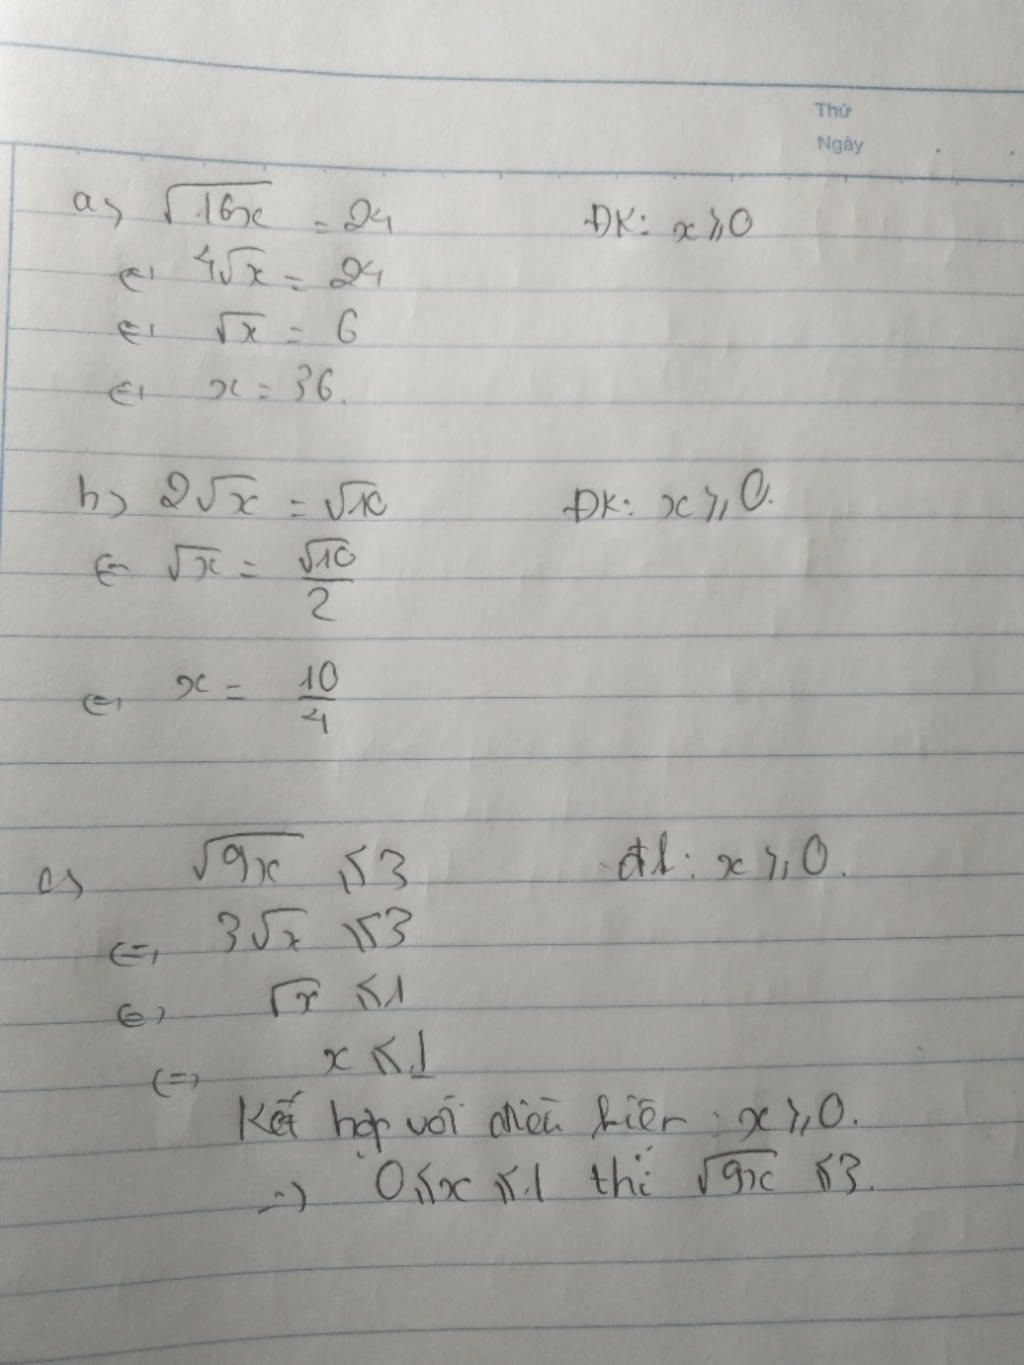 Thứ
Ngày
a) √16x = 24 ĐK: x ⩾ 0
⇔ 4√x = 24
⇔ √x = 6
⇔ x = 36.
b) 2√x = √10 ĐK: x ⩾ 0.
⇔ √x = √10/2
⇔ x = 10/4
c) √9x ⩽ 3 đk: x ⩾ 0.
⇔ 3√x ⩽ 3
⇔ √x ⩽ 1
⇔ x ⩽ 1
Kết hợp với điều kiện: x ⩾ 0.
⇒ 0 ⩽ x ⩽ 1 thì √9x ⩽ 3.